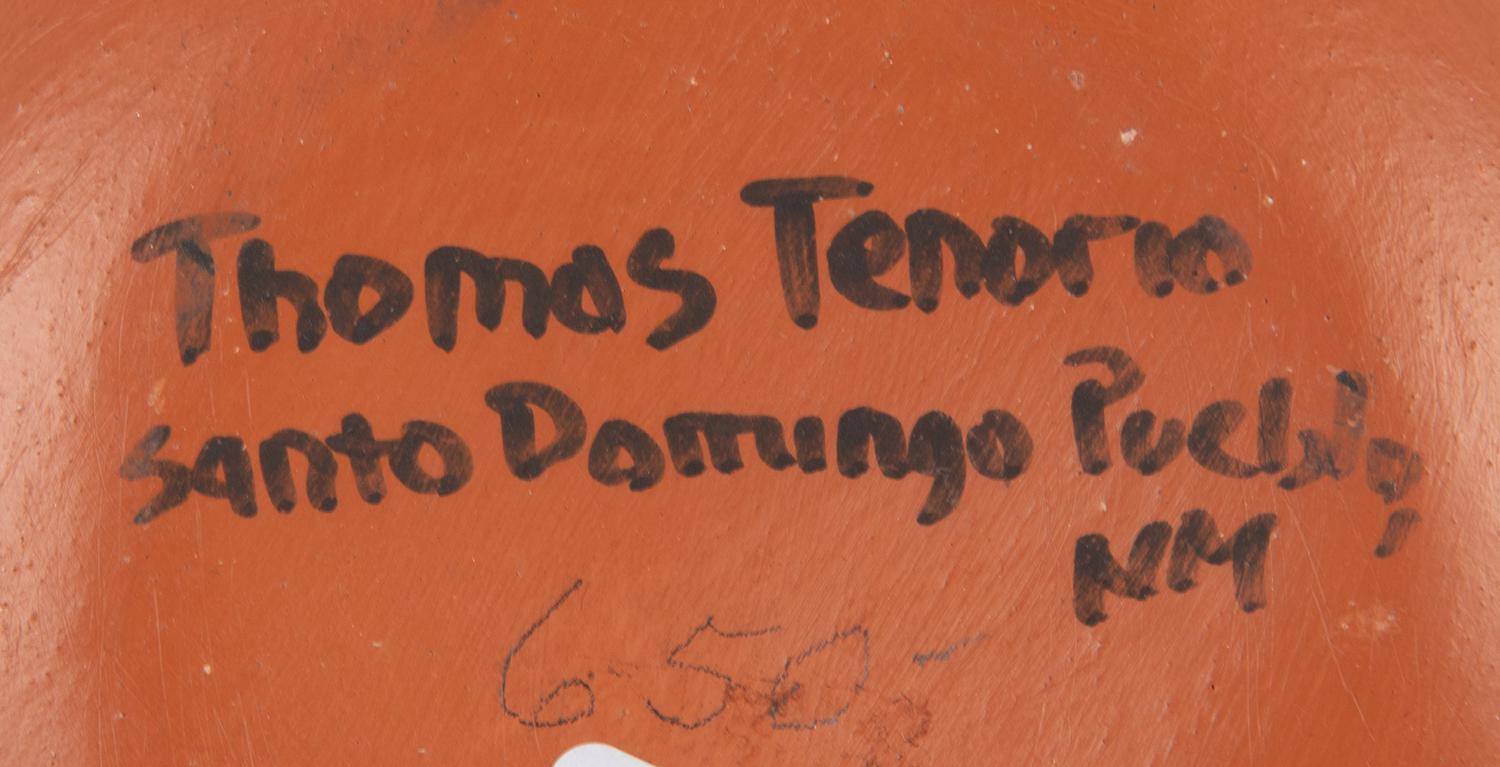 Thomas Tenorio
Santo Domingo Pueblo,
NM
650-